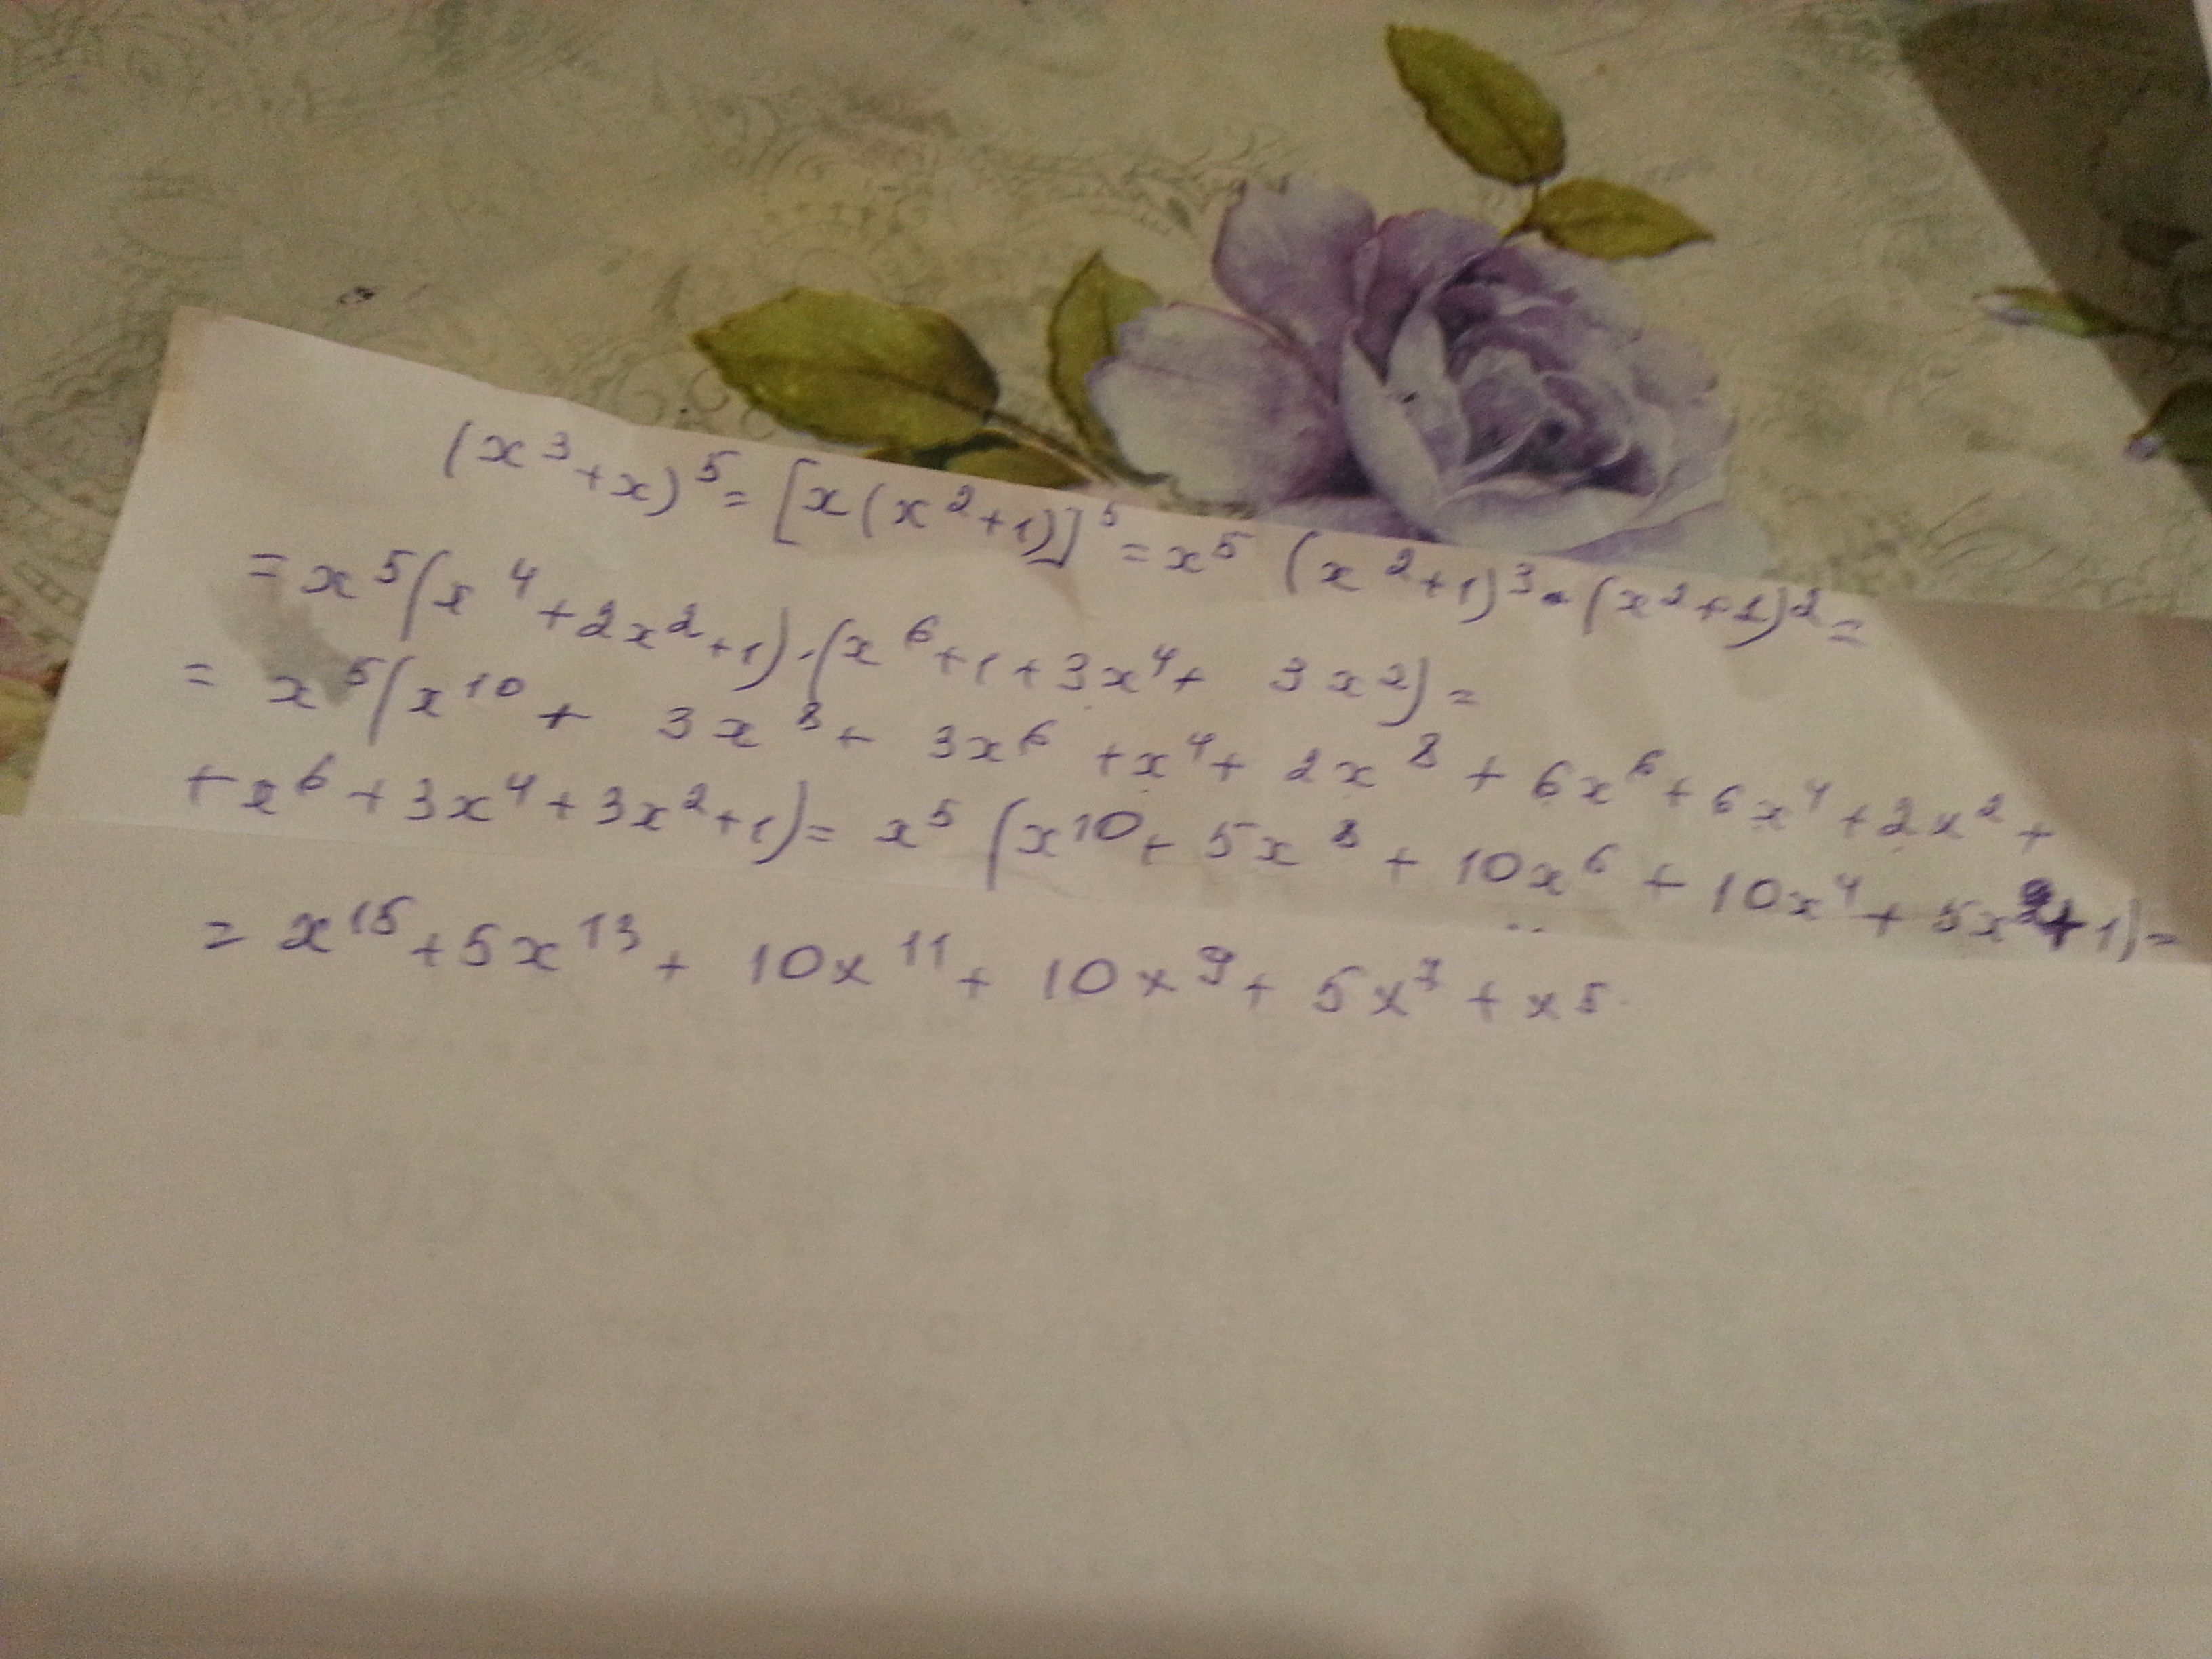 (x³+x)⁵=[x(x²+1)]⁵=x⁵(x²+1)³·(x²+1)²=
=x⁵(x⁴+2x²+1)·(x⁶+1+3x⁴+3x²)=
=x⁵(x¹⁰+3x⁸+3x⁶+x⁴+2x⁸+6x⁶+6x⁴+2x²+
+x⁶+3x⁴+3x²+1)=x⁵(x¹⁰+5x⁸+10x⁶+10x⁴+5x²+1)=
=x¹⁵+5x¹³+10x¹¹+10x⁹+5x⁷+x⁵